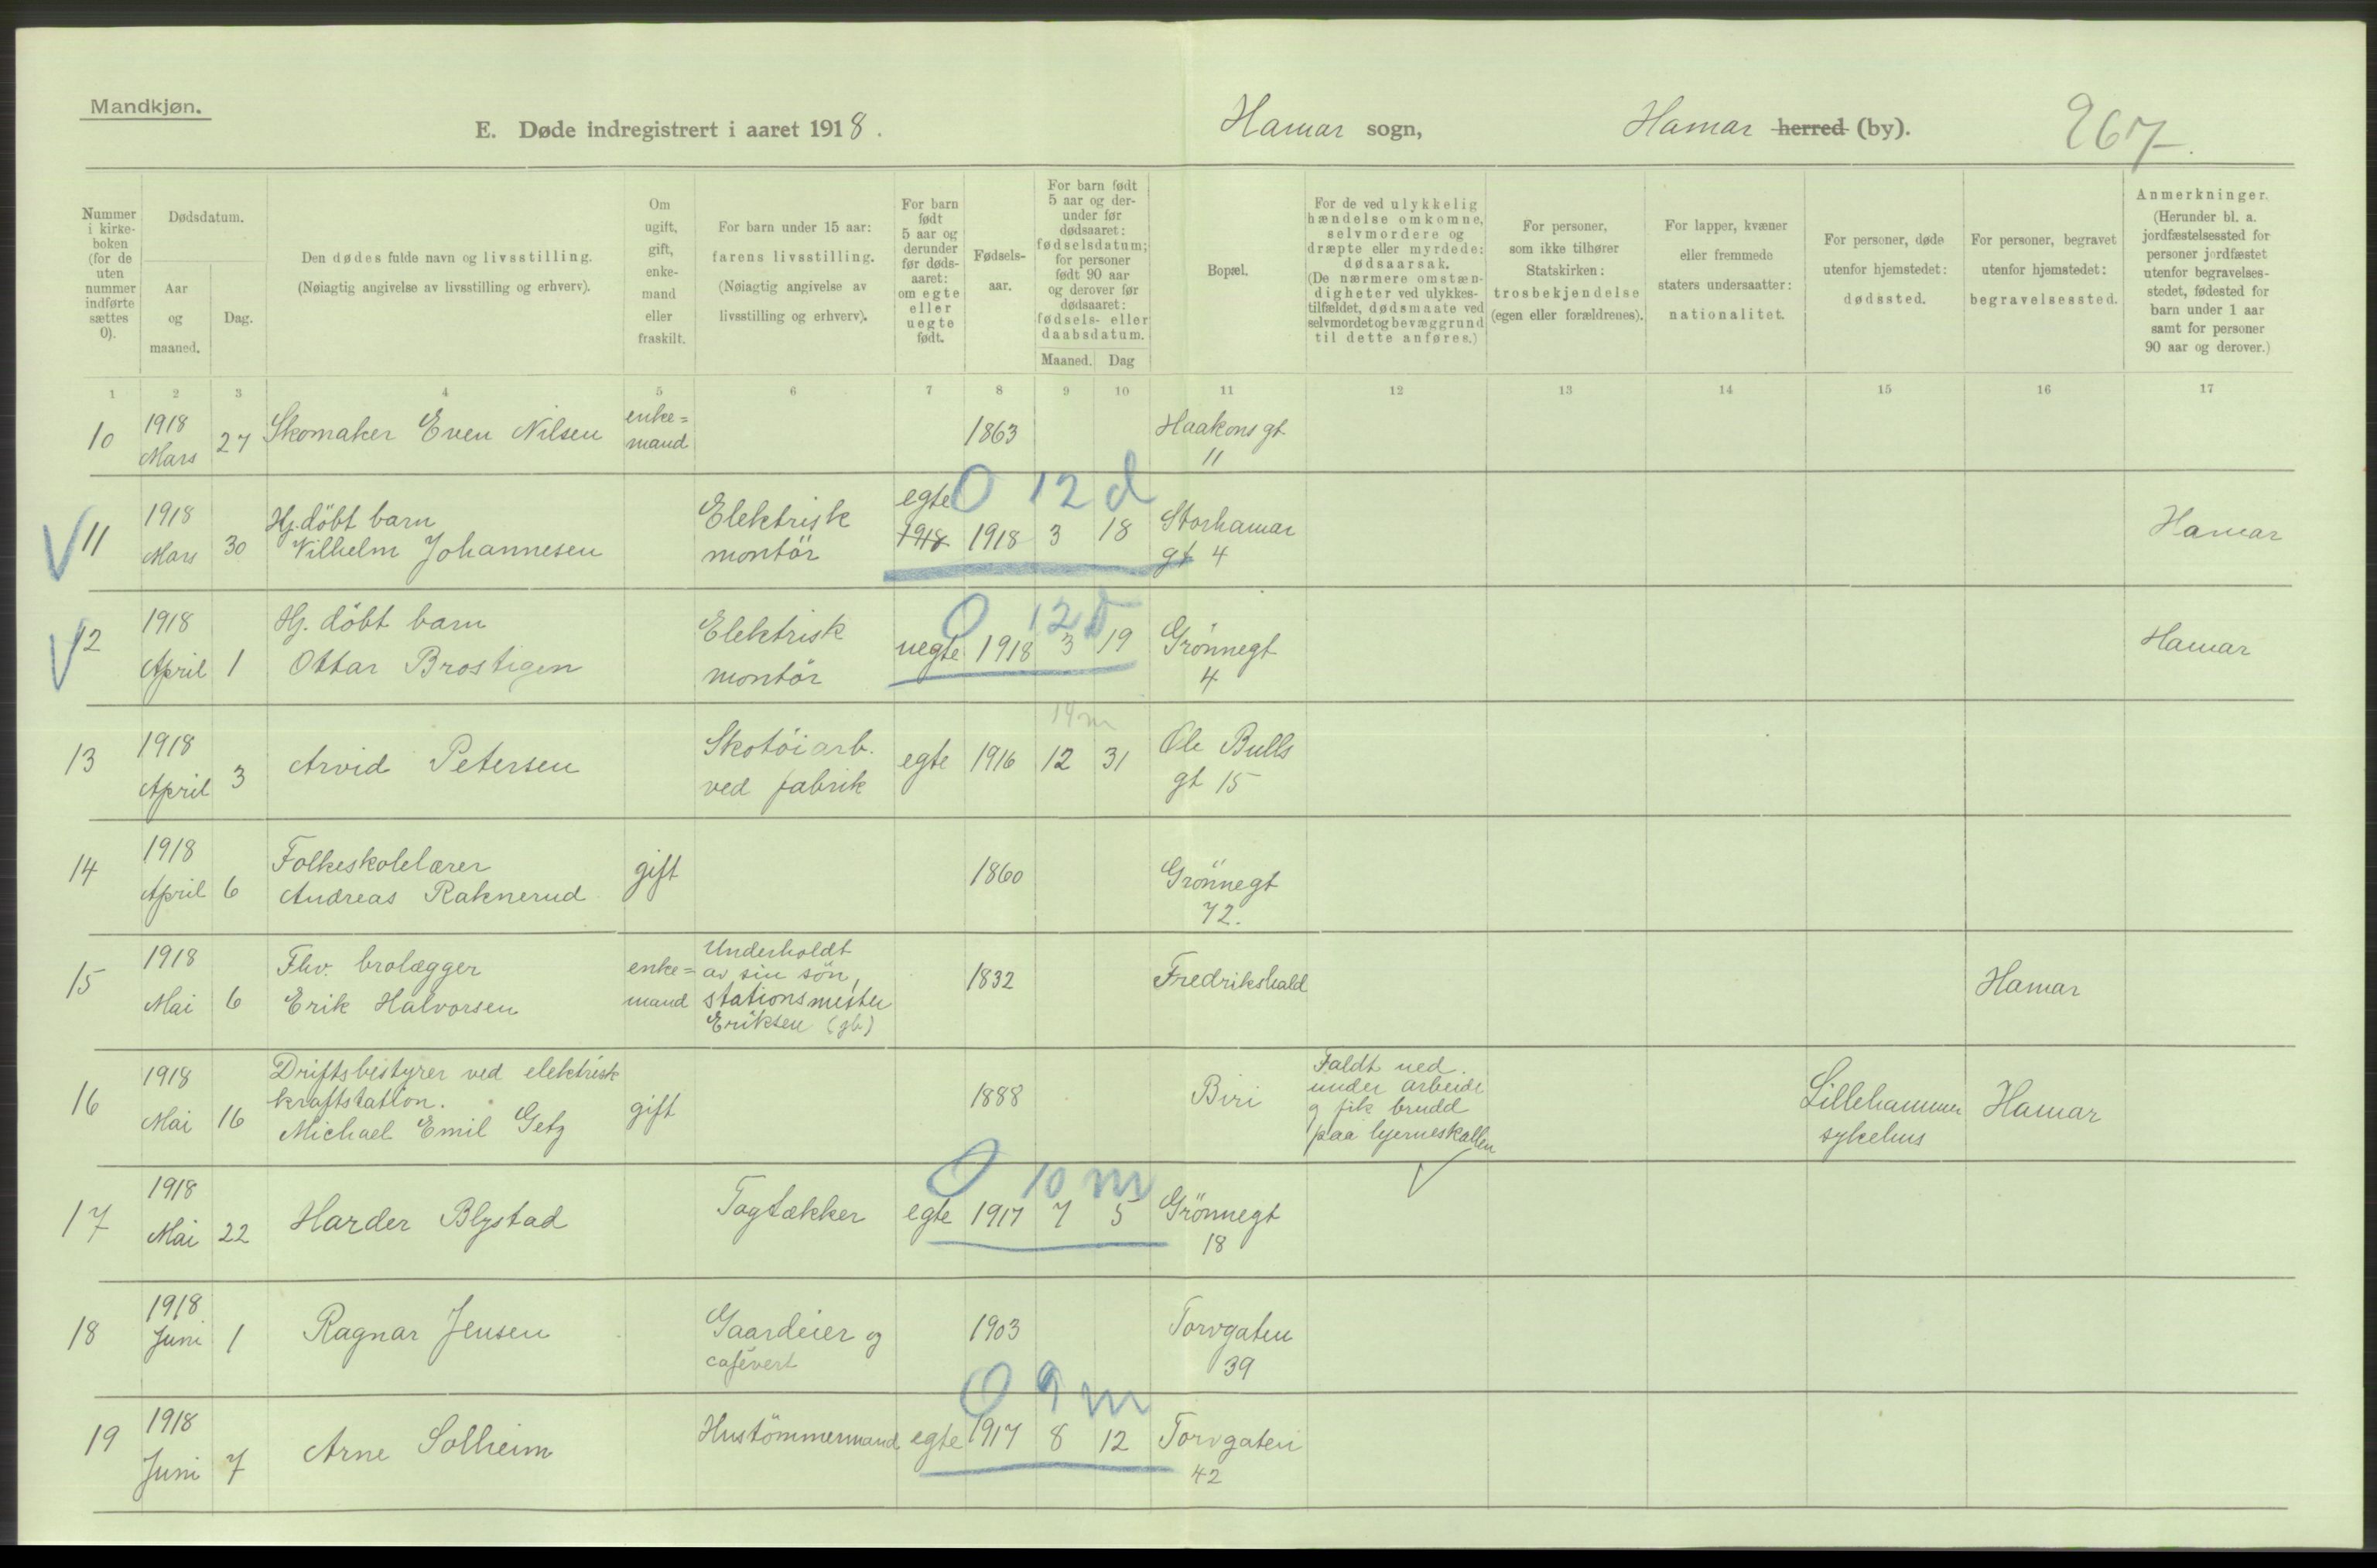 Mandkjøn.
E. Døde indregistrert i aaret 1918.
Hamar sogn,
Hamar herred (by).
267
Nummer i kirke-boken (for de uten nummer indførte sættes 0).
Dødsdatum.
Aar og maaned.
Dag.
Den dødes fulde navn og livsstilling.
(Nøiagtig angivelse av livsstilling og erhverv).
Om ugift, gift, enke-mand eller fraskilt.
For barn under 15 aar:
farens livsstilling.
(Nøiagtig angivelse av livsstilling og erhverv).
For barn født 5 aar og derunder før døds-aaret: om egte eller uegte født.
Fødsels-aar.
For barn født 5 aar og der-under før dødsaaret: fødselsdatum; for personer født 90 aar og derover før dødsaaret: fødsels- eller daabsdatum.
Maaned.
Dag
Bopæl.
For de ved ulykkelig hændelse omkomne, selvmordere og dræpte eller myrdede: dødsaarsak.
(De nærmere omstæn-digheter ved ulykkes-tilfældet, dødsmaate ved selvmordet og bevæggrund til dette anføres.)
For personer, som ikke tilhører Statskirken: trosbekjendelse (egen eller forældrenes).
For lapper, kvæner eller fremmede staters undersaatter: nationalitet.
For personer, døde utenfor hjemstedet: dødssted.
For personer, begravet utenfor hjemstedet: begravelsessted.
Anmerkninger.
(Herunder bl. a. jordfæstelsessted for personer jordfæstet utenfor begravelses-stedet, fødested for barn under 1 aar samt for personer 90 aar og derover.)
1 2 3 4 5 6 7 8 9 10 11 12 13 14 15 16 17
10 1918 Mars 27 Skomaker Even Nilsen enke=mand 1863 Haakons gt 11
0 12 d
11 1918 Mars 30 Hj. döbt barn Vilhelm Johannesen Elektrisk montör egte 1918 1918 3 18 Storhamar gt 4 Hamar
0 12 d
12 1918 April 1 Hj. döbt barn Ottar Brostigen Elektrisk montör uegte 1918 3 19 Grönnegt 4 Hamar
14 m
13 1918 April 3 Arvid Petersen Skotöiarb. ved fabrik egte 1916 12 31 Ole Bulls gt 15
14 1918 April 6 Folkeskolelærer Andreas Raknerud gift 1860 Grönnegt 72.
15 1918 Mai 6 Fhv. brolægger Erik Halvorsen enke=mand Underholdt av sin sön, stationsmester Eriksen (gb) 1832 Fredrikshald Hamar
16 1918 Mai 16 Driftsbestyrer ved elektrisk kraftstation. Michael Emil Getz gift 1888 Biri Faldt ned under arbeide og fik brudd paa hjerneskallen Lillehammer sykehus Hamar
0 10 m
17 1918 Mai 22 Harder Blystad Tagtækker egte 1917 7 5 Grönnegt 18
18 1918 Juni 1 Ragnar Jensen Gaardeier og cafévert 1903 Torvgaten 39
0 9 m
19 1918 Juni 7 Arne Solheim Hustömmermand egte 1917 8 12 Torvgaten 42